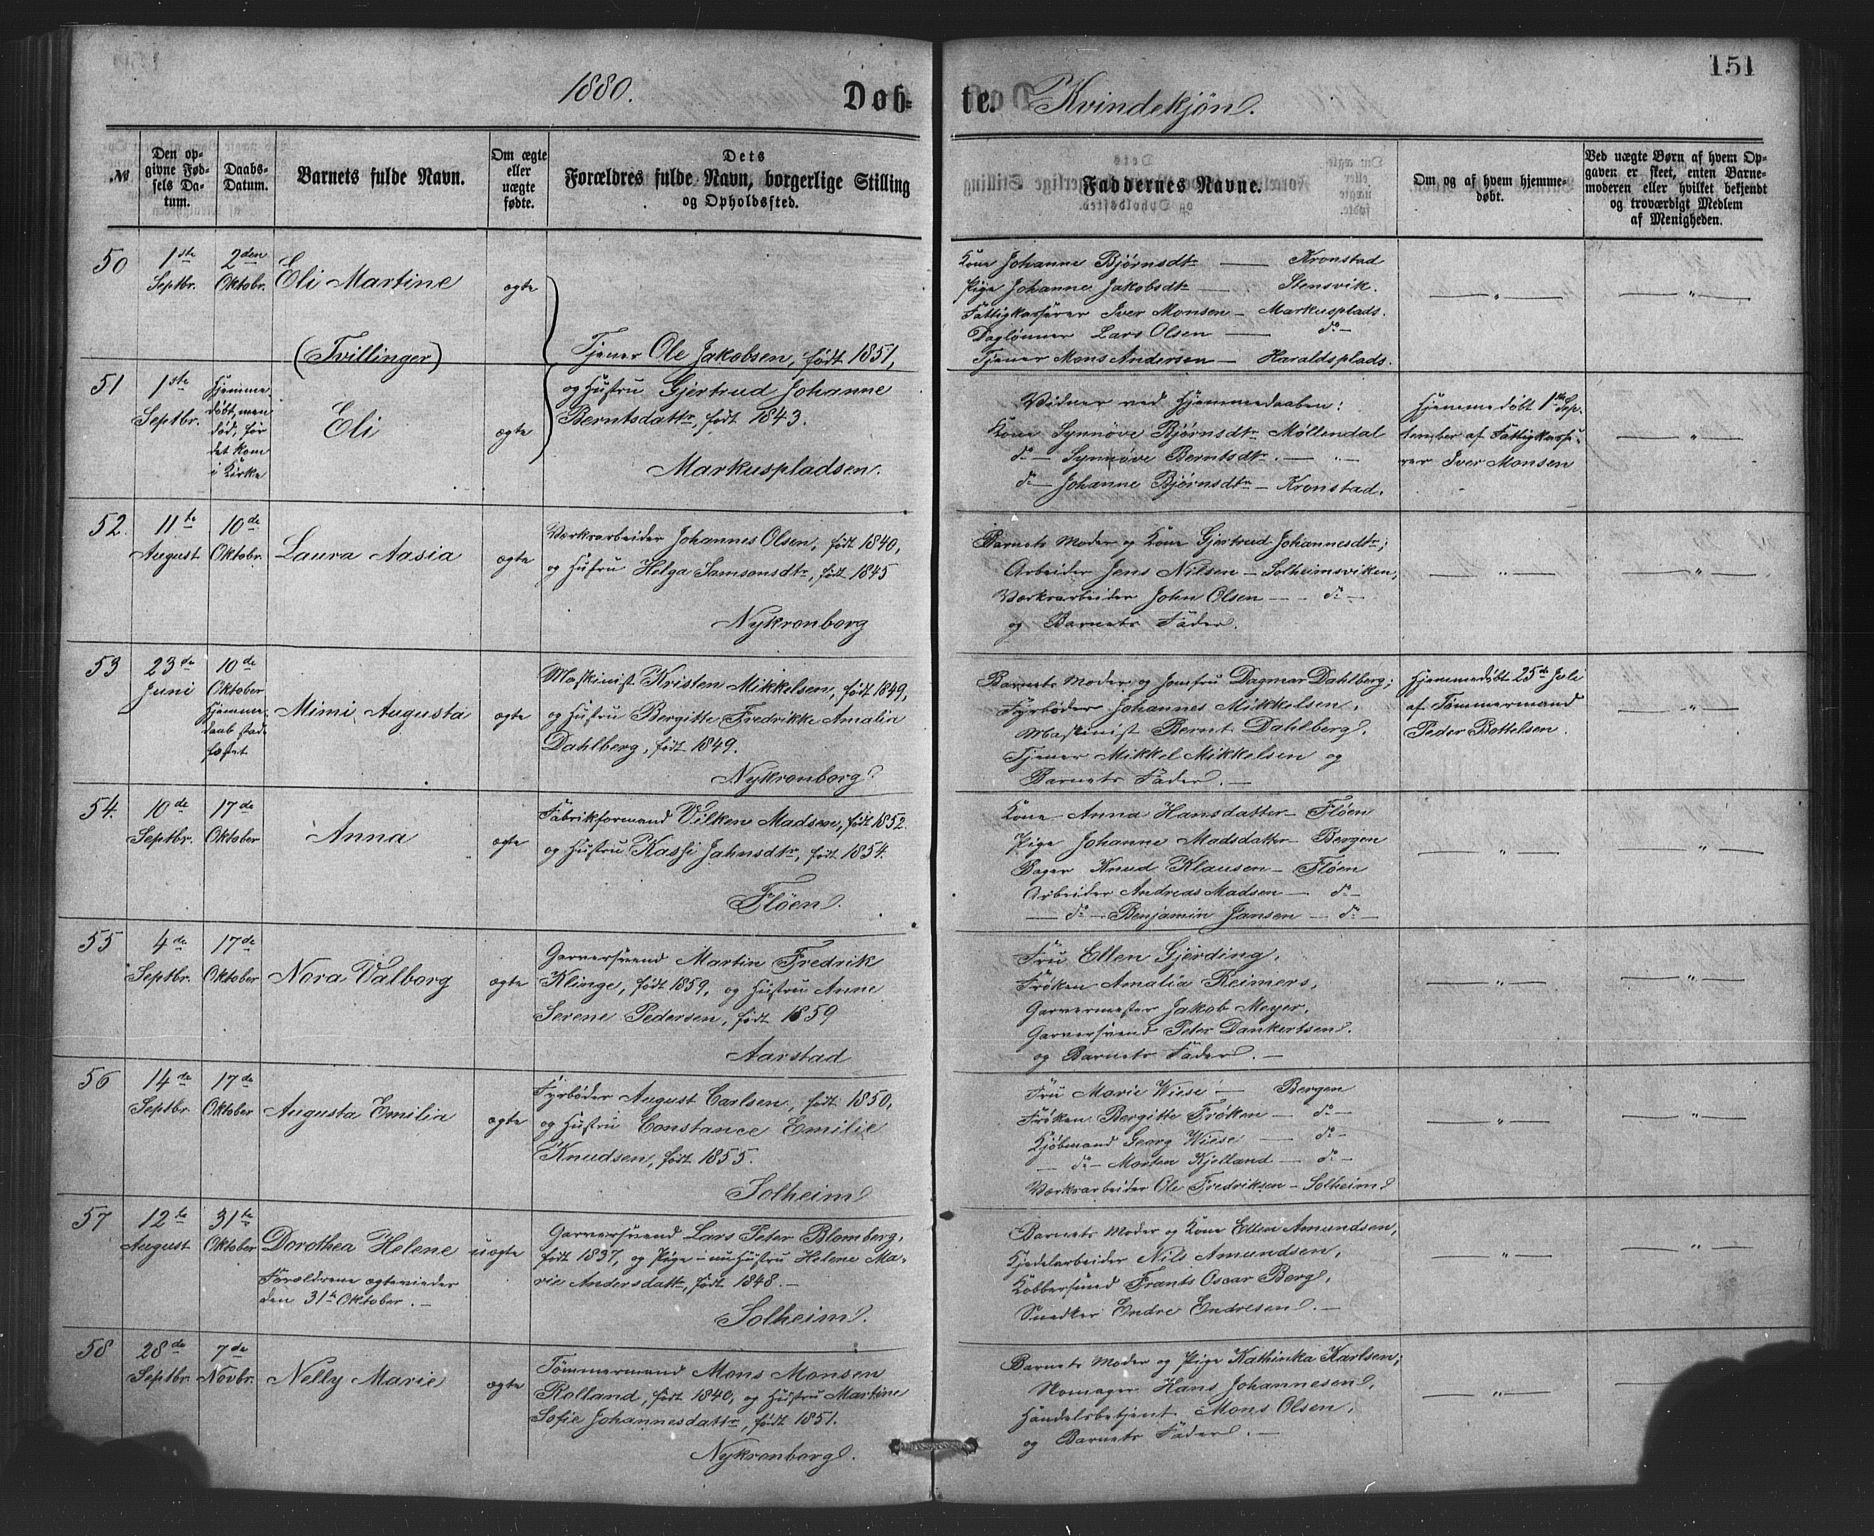 1880.
Døb-
te. Kvindekjön.
151
№
Den op-
givne Fød-
sels Da-
tum.
Daabs-
Datum.
Barnets fulde Navn.
Om ægte
eller
uægte
fødte.
Dets
Forældres fulde Navn, borgerlige Stilling
og Opholdssted.
Faddernes Navne.
Om og af hvem hjemme-
døbt.
Ved uægte Børn af hvem Op-
gaven er skeet, enten Barne-
moderen eller hvilket bekjendt
og troværdigt Medlem
af Menigheden.
50
1ste
Septbr.
2den
Oktobr.
Eli Martine
ægte
(Tvillinger)
Tjener Ole Jakobsen, født 1851,
og Hustru Gjertrud Johanne
Berntsdattr, født 1843.
Markuspladsen.
Kone Johanne Bjørnsdtr — Kronstad
Pige Johanne Jakobsdtr — Stensvik.
Fattigkasserer Iver Monsen — Markusplads.
Daglønner Lars Olsen — do —
Tjener Mons Andersen — Haraldsplads.
— " —
— " —
51
1ste
Septbr.
Hjemme-
døbt, men
død, før
det kom
i Kirke
Eli
ægte
Vidner ved Hjemmedaaben:
Kone Synnöve Bjørnsdtr Møllendal
do — Synnöve Berntsdtr. — " —
do — Johanne Bjørnsdtr — Kronstad.
Hjemmedøbt 1ste Sep-
tember af Fattigkasse-
rer Iver Monsen
— " —
52.
11te
August
10de
Oktobr.
Laura Aasia
ægte
Værkarbeider Johannes Olsen, født 1840,
og Hustru Helga Samsonsdtr, født 1845
Nykronborg
Barnets Moder og Kone Gjertrud Johannesdtr;
Arbeider Jens Nilsen — Solheimsviken,
Værkarbeider John Olsen — do —
og Barnets Fader.
— " —
— " —
53
23de
Juni
10de
Oktober
Hjemme-
daab stad-
fæstet
Mimi Augusta
ægte
Maskinist Kristen Mikkelsen, født 1849,
og Hustru Bergitte Fredrikke Amalia
Dahlberg, født 1849.
Nykronborg
Barnets Moder og Jomfru Dagmar Dahlberg;
Fyrbøder Johannes Mikkelsen,
Maskinist Bernt Dahlberg,
Tjener Mikkel Mikkelsen og
Barnets Fader. —
Hjemmedøbt 25de Juli
af Tømmermand
Peder Bottelsen.
— " —
54.
10de
Septbr.
17de
Oktober
Anna
ægte
Fabrikformand Vilken Madsen, født 1852.
og Hustru Kassi Jahnsdtr, født 1854.
Fløen.
Kone Anna Hansdatter — Fløen
Pige Johanne Madsdatter — Bergen
Bager Knud Klausen — Fløen
Arbeider Andreas Madsen — do —
— do — Benjamin Jansen — do —
— " —
— " —
55
4de
Septbr.
17de
Oktober
Nora Valborg
ægte
Garversvend Martin Fredrik
Klinge, født 1859, og Hustru Anne
Serene Pedersen, født 1859
Aarstad
Fru Ellen Gjerding,
Frøken Amalia Reimers,
Garvermester Jakob Meyer,
Garversvend Peter Dankertsen
og Barnets Fader. —
— " —
— " —
56
14de
Septbr.
17de
Oktober
Augusta Emilia
ægte
Fyrbøder August Carlsen, født 1850,
og Hustru Constance Emilie
Knudsen, født 1855.
Solheim
Fru Marie Wiese — Bergen
Frøken Bergitte Frøken — do —
Kjøbmand Georg Wiese — do —
— do — Morten Kjelland — do —
Værkarbeider Ole Fredriksen — Solheim
— " —
— " —
57
12te
August
31te
Oktober
Dorothea Helene
Forældrene ægteviede
den 31te Oktober. —
uægte
Garversvend Lars Peter Blomberg,
født 1837, og Pige — nu Hustru Helene Ma-
rie Andersdattr, født 1848. —
Solheim.
Barnets Moder og Kone Ellen Amundsen,
Kjedelarbeider Nils Amundsen,
Kobbersmed Frants Oscar Berg,
Snedker Endre Endresen. —
— " —
— " —
58
28de
Septbr.
7de
Novbr.
Nelly Marie
ægte
Tømmermand Mons Monsen
Rolland, født 1840, og Hustru Martine
Sofie Johannesdattr, født 1851.
Nykronborg.
Barnets Moder og Pige Kathinka Karlsen;
Hans Johannesen,
Handelsbetjent Mons Olsen,
og Barnets Fader. —
— " —